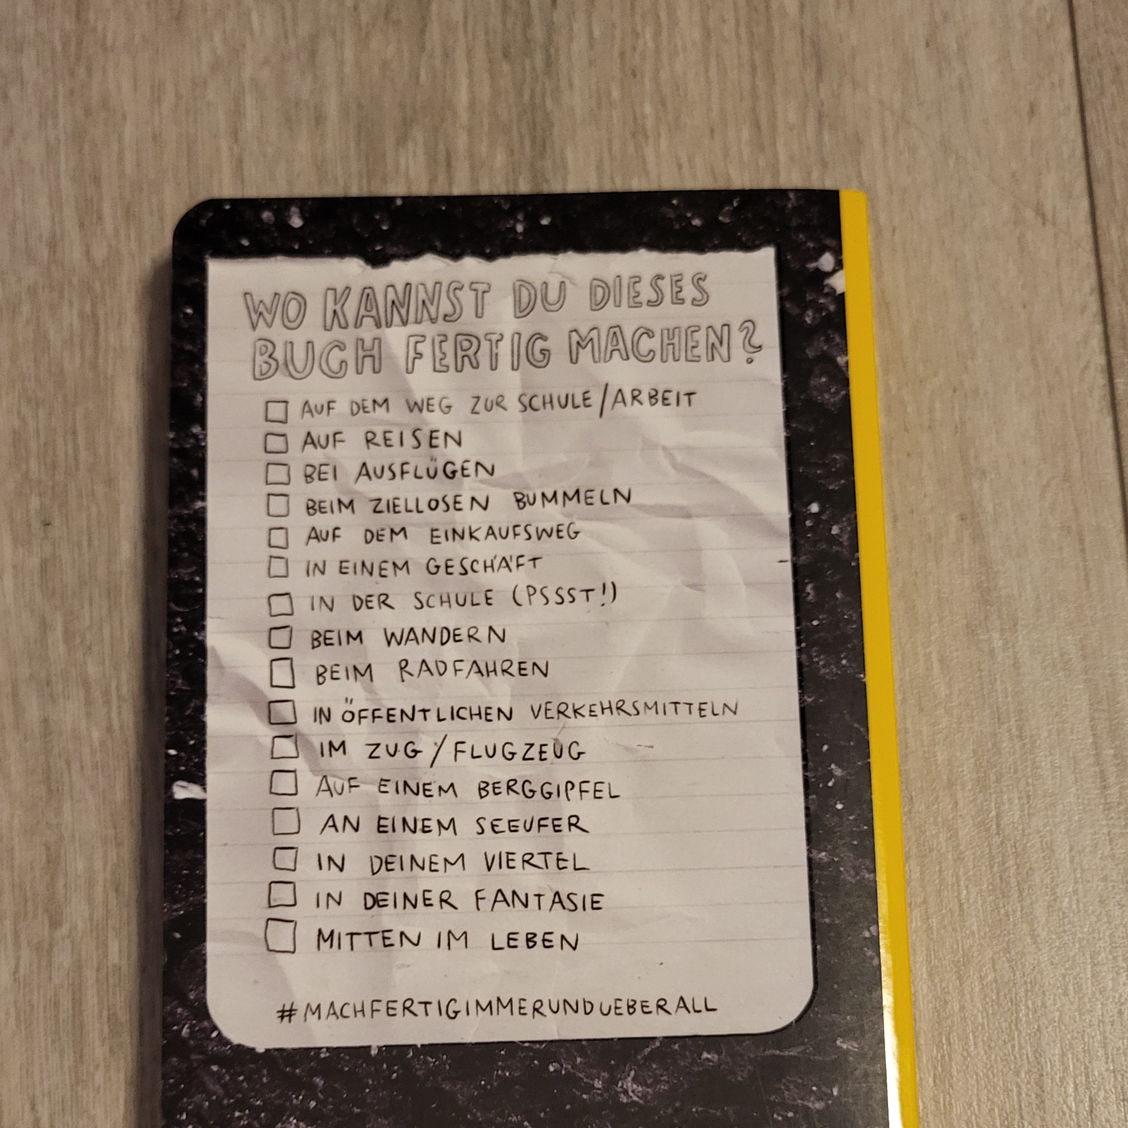 WO KANNST DU DIESES
BUCH FERTIG MACHEN?
AUF DEM WEG ZUR SCHULE/ARBEIT
AUF REISEN
BEI AUSFLÜGEN
BEIM ZIELLOSEN BUMMELN
AUF DEM EINKAUFSWEG
IN EINEM GESCHÄFT
IN DER SCHULE (PSSST!)
BEIM WANDERN
BEIM RADFAHREN
IN ÖFFENTLICHEN VERKEHRSMITTELN
IM ZUG/FLUGZEUG
AUF EINEM BERGGIPFEL
AN EINEM SEEUFER
IN DEINEM VIERTEL
IN DEINER FANTASIE
MITTEN IM LEBEN
#MACHFERTIGIMMERUNDUEBERALL